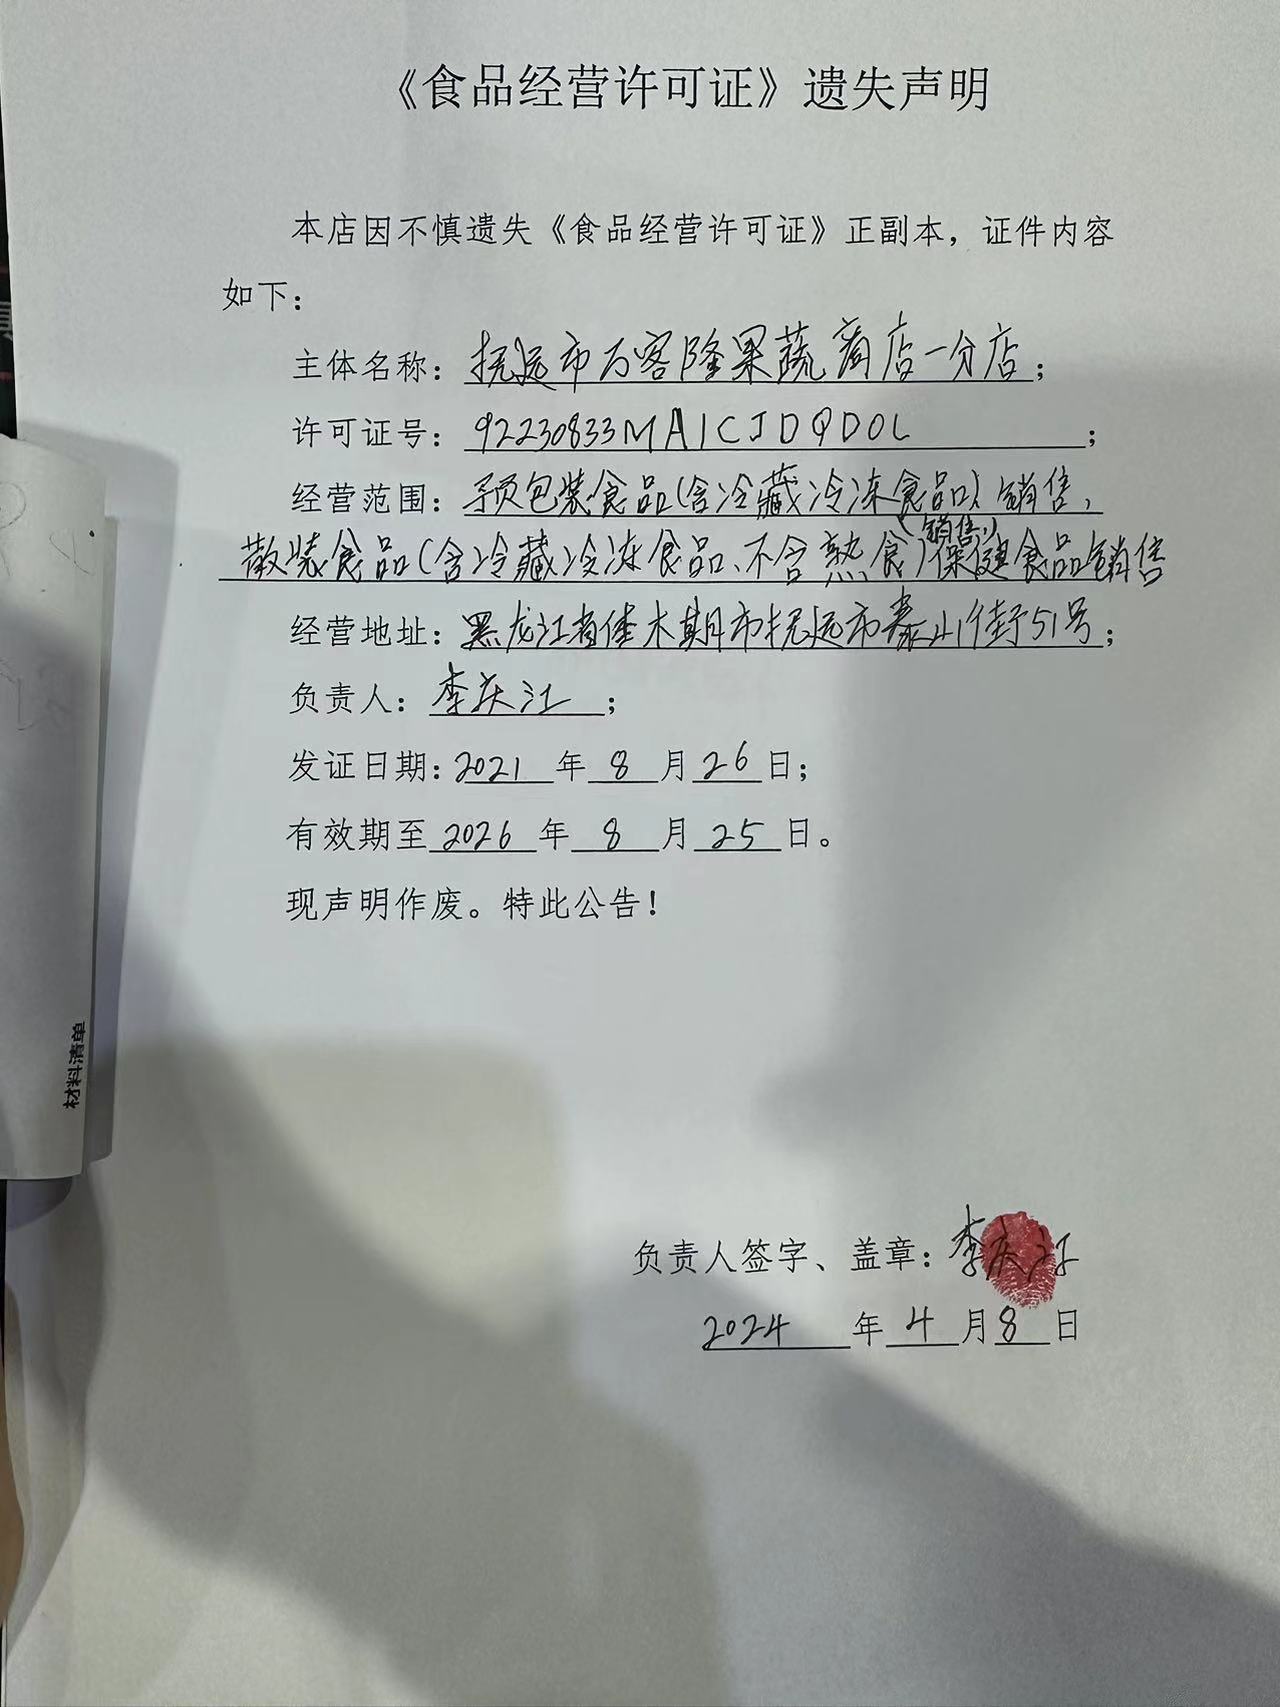 《食品经营许可证》遗失声明
本店因不慎遗失《食品经营许可证》正副本，证件内容
如下：
主体名称：抚远市万客隆果蔬商店一分店；
许可证号：92230833MA1CJDQD0L；
经营范围：预包装食品(含冷藏冷冻食品)销售，
(销售)
散装食品(含冷藏冷冻食品、不含熟食)保健食品销售
经营地址：黑龙江省佳木斯市抚远市泰山街51号；
负责人：李庆江；
发证日期：2021年8月26日；
有效期至2026年8月25日。
现声明作废。特此公告！
负责人签字、盖章：李庆江
2024年4月8日
材料清单